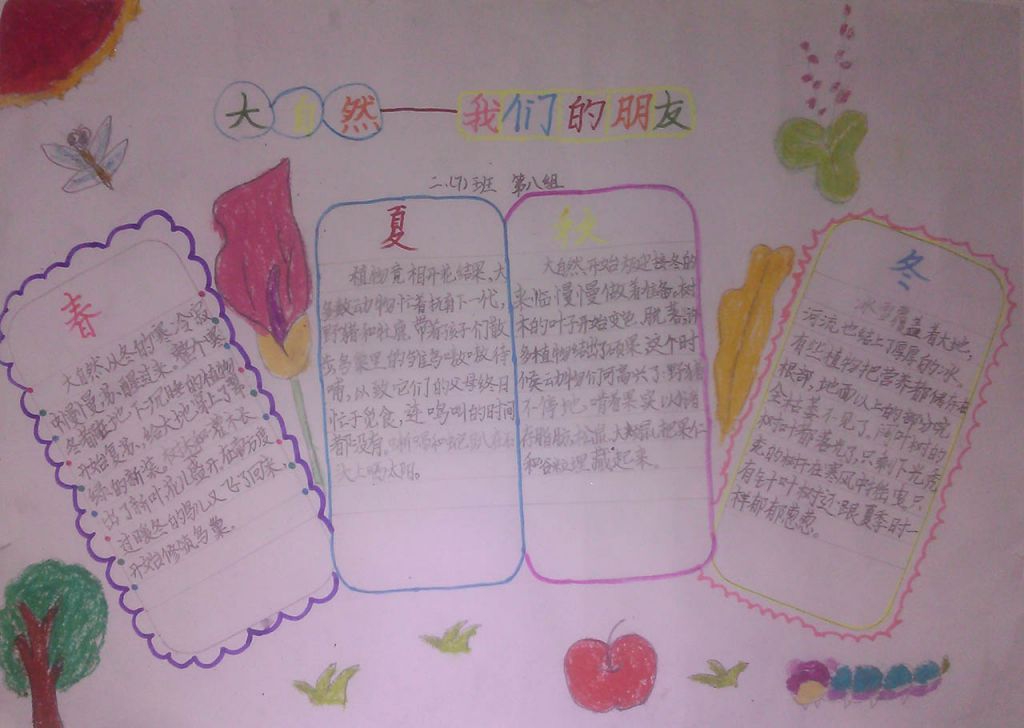 大自然——我们的朋友
二.(7)班 第八组
春
大自然从冬的寒冷寂
中慢慢苏醒过来。整个寒
冬着睡地下沉睡的植物
开始复苏,给大地穿上了第
绿的新装。树长如常不长
出了新叶,花儿盛开在南方度
过暖冬的鸟儿又飞了回来,
开始修筑鸟巢。
夏
植物竞相开花结果、大
多数动物忙着抚育下一代,
野猪和牡鹿带着孩子们散
步鸟巢里的雏鸟嗷嗷待
哺,从致它们的父母终日
忙于觅食,连鸣叫的时间
都没有。蜥蜴和蛇趴在石
头上晒太阳。
秋
大自然开始为迎接冬的
来临慢慢做着准备。树
木的叶子开始变色、脱落,许
多植物结出了硕果,这个时
候动物们可高兴了:野猪
不停地啃着果实以储
存脂肪,松鼠、大鼠把果仁
和谷粒埋藏起来。
冬
冰雪覆盖着大地,
河流也结上了厚厚的冰。
有些植物把营养都储存在
根部,地面以上的部分完
全枯萎不见了。阔叶树的
树叶都落光了,只剩下光秃
秃的树干在寒风中摇曳只
有针叶树还跟夏季时一
样郁郁葱葱。